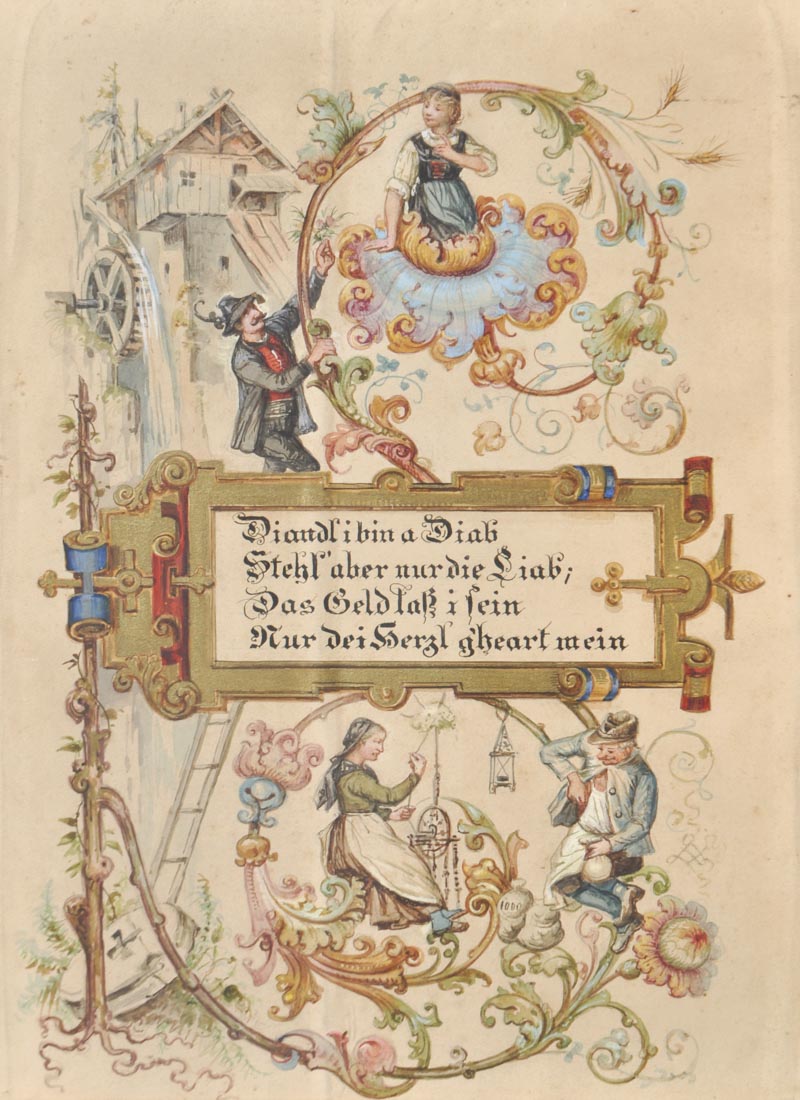 Diandl i bin a Diab
Stehl' aber nur die Liab;
Das Geld laß i sein
Nur dei Herzl g'heart mein
1000